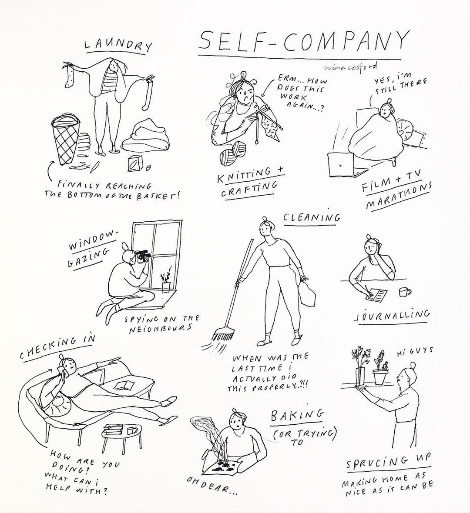 SELF-COMPANY
ninacosford
LAUNDRY
FINALLY REACHING
THE BOTTOM OF THE BASKET!
ERM... HOW
DOES THIS
WORK
AGAIN..?
KNITTING +
CRAFTING
YES, I'M
STILL THERE
FILM + TV
MARATHONS
WINDOW-
GAZING
SPYING ON THE
NEIGHBOURS
CLEANING
WHEN WAS THE
LAST TIME I
ACTUALLY DID
THIS PROPERLY..?!!
JOURNALLING
CHECKING IN
HOW ARE YOU
DOING?
WHAT CAN I
HELP WITH?
BAKING
(OR TRYING)
TO
OH DEAR...
HI GUYS
SPRUCING UP
MAKING HOME AS
NICE AS IT CAN BE